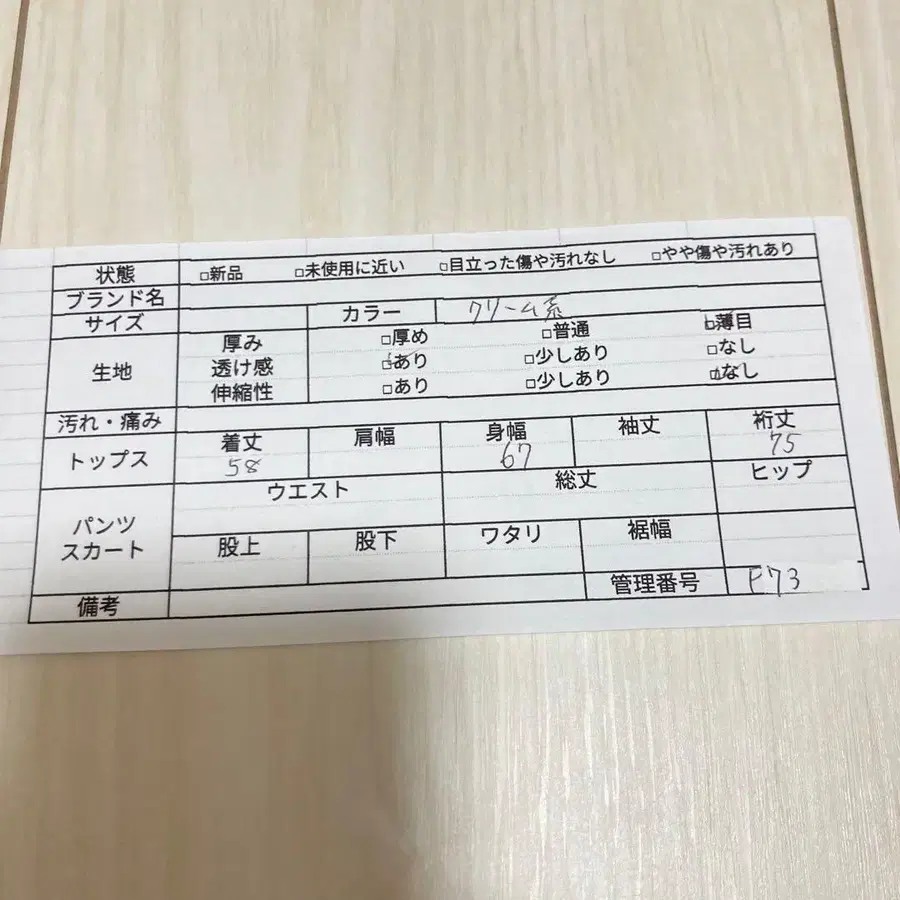 状態 □新品 □未使用に近い □目立った傷や汚れなし □やや傷や汚れあり
ブランド名
サイズ カラー クリーム系
生地 厚み □厚め □普通 □薄目
透け感 □あり □少しあり □なし
伸縮性 □あり □少しあり □なし
汚れ・痛み
トップス 着丈 肩幅 身幅 袖丈 裄丈
58 67 75
パンツ スカート ウエスト 総丈 ヒップ
股上 股下 ワタリ 裾幅
備考 管理番号 F73